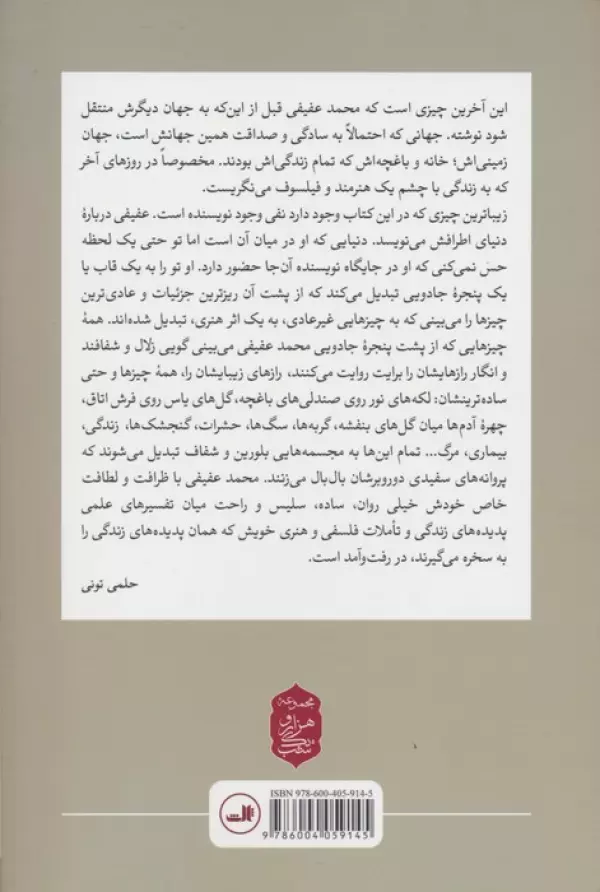 این آخرین چیزی است که محمد عفیفی قبل از این‌که به جهان دیگرش منتقل
شود نوشته. جهانی که احتمالاً به سادگی و صداقت همین جهانش است، جهان
زمینی‌اش؛ خانه و باغچه‌اش که تمام زندگی‌اش بودند. مخصوصاً در روزهای آخر
که به زندگی با چشم یک هنرمند و فیلسوف می‌نگریست.
زیباترین چیزی که در این کتاب وجود دارد نفی وجود نویسنده است. عفیفی دربارهٔ
دنیای اطرافش می‌نویسد. دنیایی که او در میان آن است اما تو حتی یک لحظه
حس نمی‌کنی که او در جایگاه نویسنده آن‌جا حضور دارد. او تو را به یک قاب یا
یک پنجرهٔ جادویی تبدیل می‌کند که از پشت آن ریزترین جزئیات و عادی‌ترین
چیزها را می‌بینی که به چیزهایی غیرعادی، به یک اثر هنری، تبدیل شده‌اند. همهٔ
چیزهایی که از پشت پنجرهٔ جادویی محمد عفیفی می‌بینی گویی زلال و شفافند
و انگار رازهایشان را برایت روایت می‌کنند، رازهای زیبایشان را، همهٔ چیزها و حتی
ساده‌ترینشان: لکه‌های نور روی صندلی‌های باغچه، گل‌های یاس روی فرش اتاق،
چهرهٔ آدم‌ها میان گل‌های بنفشه، گربه‌ها، سگ‌ها، حشرات، گنجشک‌ها، زندگی،
بیماری، مرگ... تمام این‌ها به مجسمه‌هایی بلورین و شفاف تبدیل می‌شوند که
پروانه‌های سفیدی دوروبرشان بال‌بال می‌زنند. محمد عفیفی با ظرافت و لطافت
خاص خودش خیلی روان، ساده، سلیس و راحت میان تفسیرهای علمی
پدیده‌های زندگی و تأملات فلسفی و هنری خویش که همان پدیده‌های زندگی را
به سخره می‌گیرند، در رفت‌وآمد است.
حلمی تونی
مجموعه
هزار و
یک شب
ISBN 978-600-405-914-5
ثالث
9 786004 059145